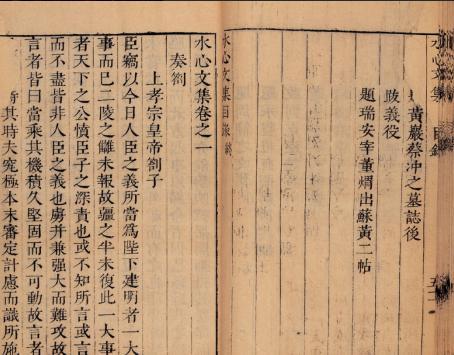 水心文集 目錄
黃巖蔡冲之墓誌後
跋義役
題瑞安宰董煟出蘇黃二帖
水心文集目錄終
水心文集卷之一
奏劄
上孝宗皇帝劄子
臣竊以今日人臣之義所當爲陛下建明者一大
事而已二陵之讎未報故疆之半未復此一大事
者天下之公憤臣子之深責也或不知所言或言
而不盡皆非人臣之義也虜并兼强大而難攻故
言者皆曰當乘其機積久堅固而不可動故言者
待其時夫究極本末審定計慮而識所施